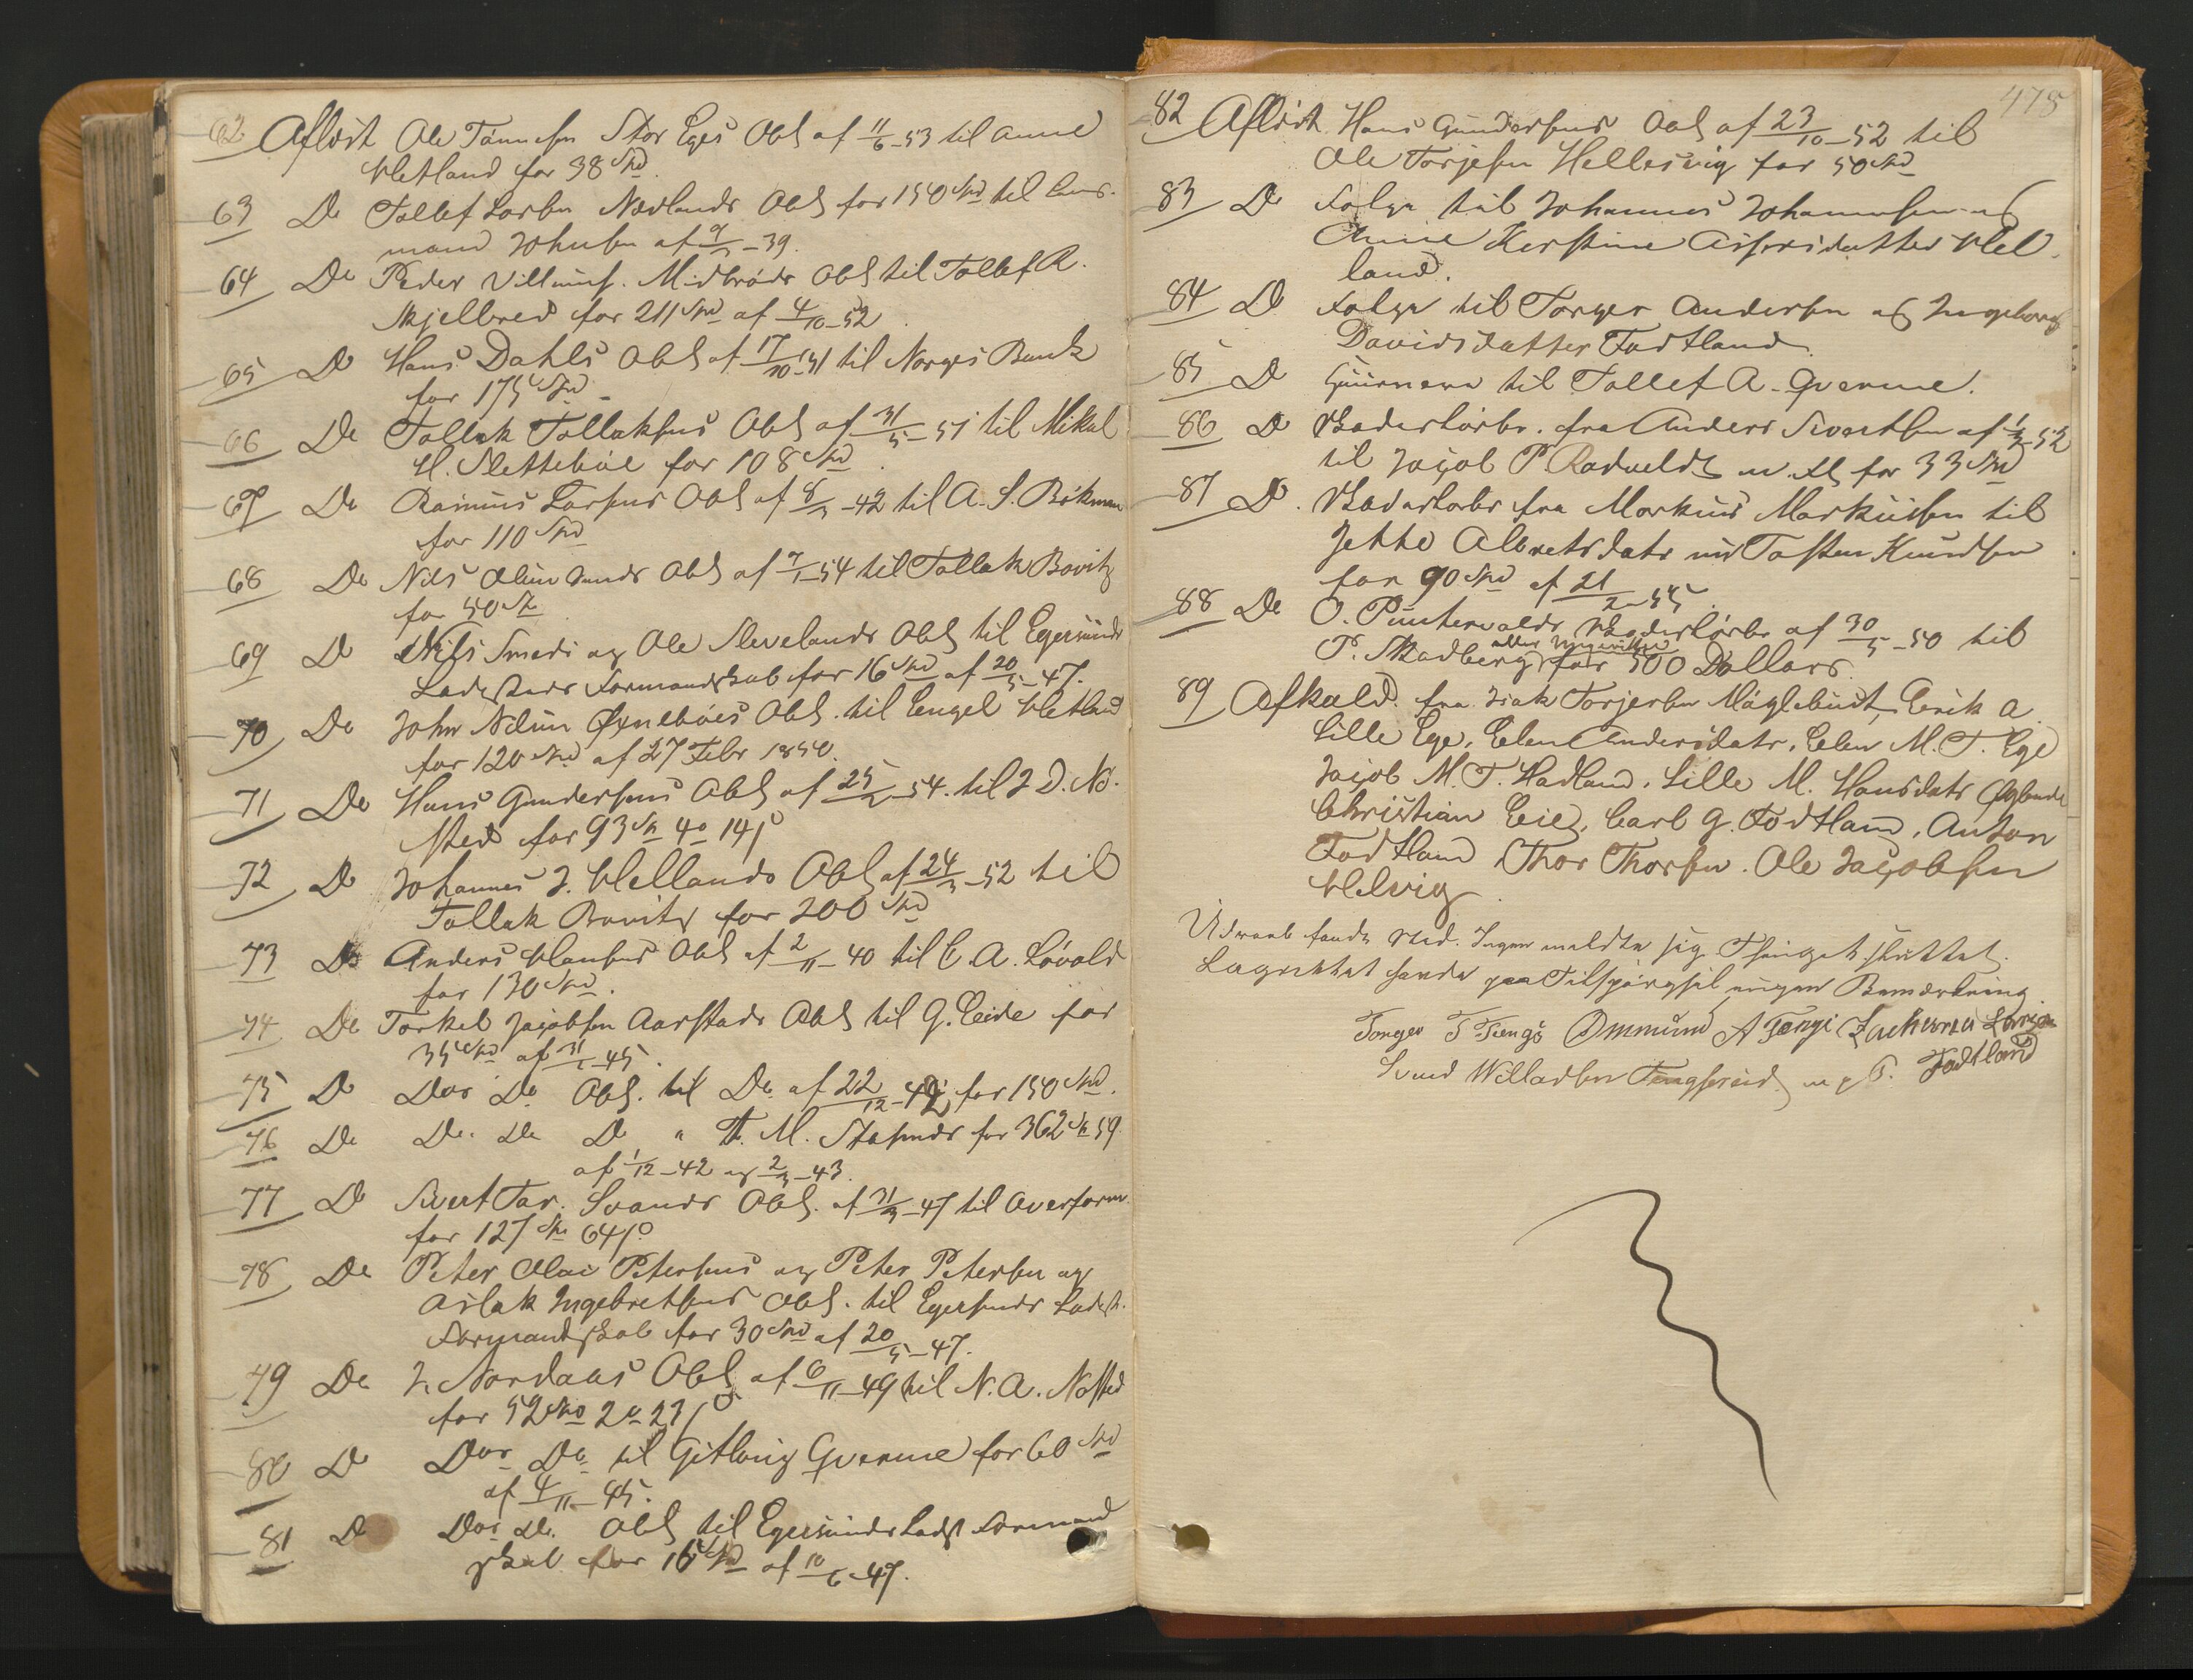 62 Aflöst Ole Tönnesen Stor Eges Obl af 11/6-53 til Anne
Hetland for 38 Spd.
63 Do Tollef Larsen Nedlands Obl for 150 Spd til
mand Johnsen af 9/-39.
64 Do Peder Villums. Midbröds Obl til Tollef R.
Skjelbred for 211 Spd af 4/10-52
65 Do Hans Dahls Obl af 17/10-31 til Norges Bank
for 175 Spd.
66 Do Tollak Tollaksens Obl af 31/5-51 til Mikal
H. Sletteböe for 108 Spd.
67 Do Rasmus Larsens Obl af 8/3-42 til A. S. Bökman
for 110 Spd
68 Do Nils Obl af 7/1-54 til Tollak Bovitz
for 50 Sp
69 Do Nils Smeds og Ole Slevelands Obl til Egersunds
Ladesteds Formandskab for 16 Spd af 20/5-47.
70 Do John Öxneböes Obl. til Engel Hetland
for 120 Spd af 27 Febr 1850.
71 Do Hans Gundersens Obl af 25/-54. til J D. Nö-
sted for 93 Sp 4 o 14 s
72 Do Johannes J. Hellands Obl af 24/3-52 til
Tollak Bovitz for 200 Spd
73 Do Anders Hansens Obl af 2/11-40 til C. A. Lövold
for 130 Spd.
74 Do Torkel Jacobsen Aarstads Obl til G. Eide for
35 Spd af 31/1-45.
75 Do Dos Do Obl. til Do af 22/12-42 for 150 Spd.
76 Do Do. Do Do " M. for 362 Sp 59.
af 1/12-42 og 2/3-43.
77 Do Sivert Tar. Svanes Obl. af 31/3-47 til Overform.
for 127 Sp 64 s
78 Do Peter Olai Petersens og Peter Petersen og
Aslak Ingebretsens Obl. til Egersunds Ladest.
Formandskab for 30 Spd af 20/5-47.
79 Do J. Nordaas Obl af 6/11-49 til N. A. Nösted
for 52 Spd 2 o 23 s
80 Do Dos Do til Gitlaug Qvenne for 60 Spd
af 4/11-45.
81 Do Dos Do. Obl til Egersunds Ladst Formand
skab for 16 Spd af 10/6-47.
478
82 Aflöst Hans Gundersens Obl af 23/10-52 til
Ole Torjesen Hellesvig for 50 Spd
83 Do Folge til Johannes Johannesen og
Anne Kerstine Assersdatter Hel-
land.
84 Do Folge til Torger Andersen og Ingeborg
Davidsdatter Fodtland.
85 Do til Tollef A. Qvenne.
86 Do Skadeslösbr. fra Anders Sivertsen af 1/3-52
til Jacob P Rodveldt m. fl for 33 Spd
87 Do. Skadeslösbr fra Markus Markussen til
Jette Albretsdatr Tosten Knudsen
for 90 Spd af 21/2-55.
88 Do O. Puntervolds Skadeslösbr af 30/5-50 til
P. Skadberg for 500 Dollars.
89 Afkald fra Isak Torjersen Mögleböst, Erik A
Lille Ege, Elen Andersdatr, Elen M. T. Ege
Jacob M. T. Hadland, Lille M. Hansdatr
Christian Eie, Carl G. Fodtland, Anton
Fodtland Thor Thorsen. Ole Jacobsen
Helvig.
Udraab fandt Sted. Ingen meldte sig. Thinget sluttet.
Lagrettet havde paa Tilspörgsel ingen Bemærkning.
Tonges T Tengs Ommund A Tengs Zacharias Larsen
Svend Willadsen Tengsareid m. p. P. Fodtland